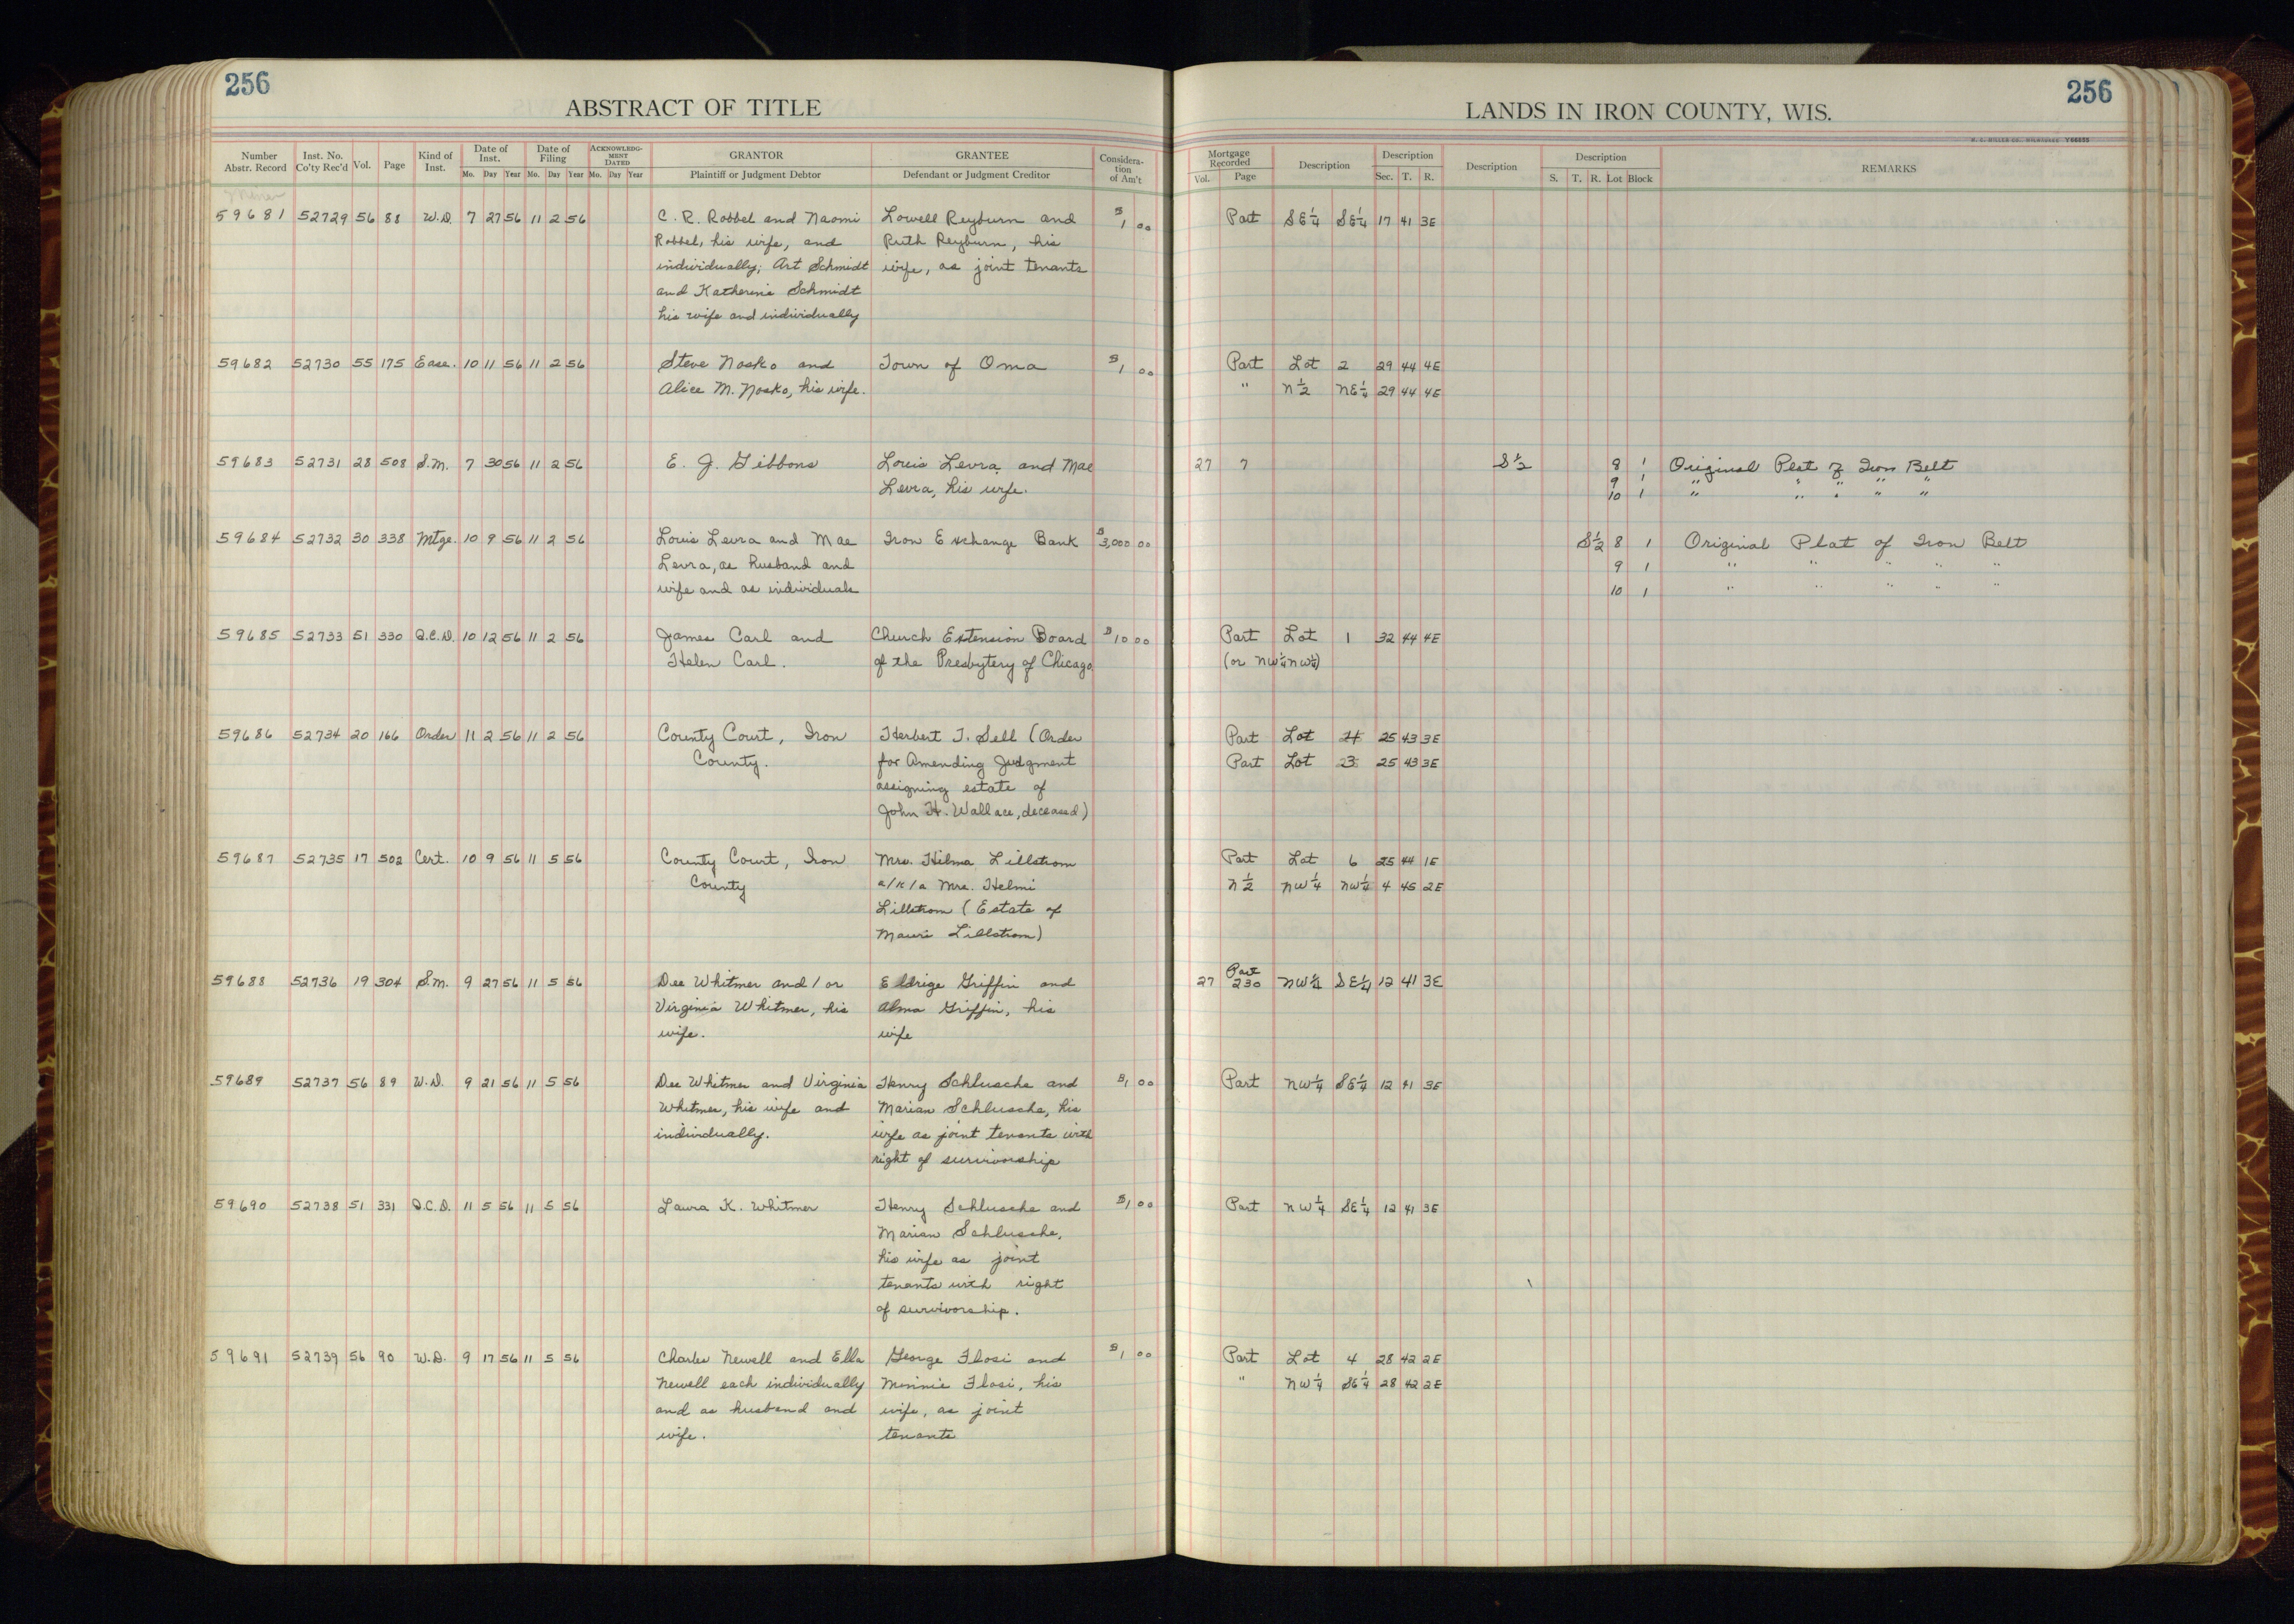 256
256
ABSTRACT OF TITLE
LANDS IN IRON COUNTY, WIS.
H. C. MILLER CO., MILWAUKEE Y66635
Number Abstr. Record Inst. No. Co'ty Rec'd Vol. Page Kind of Inst. Date of Inst. Mo. Day Year Date of Filing Mo. Day Year ACKNOWLEDGMENT DATED Mo. Day Year GRANTOR Plaintiff or Judgment Debtor GRANTEE Defendant or Judgment Creditor Consideration of Am't Mortgage Recorded Vol. Page Description Description Sec. T. R. Description Description S. T. R. Lot Block REMARKS
59681 52729 56 88 W.D. 7 27 56 11 2 56 C. R. Robbel and Naomi Lowell Reyburn and $1 00 Part SE¼ SE¼ 17 41 3E
Robbel, his wife, and Ruth Reyburn, his
individually; Art Schmidt wife, as joint tenants
and Katherine Schmidt
his wife and individually
59682 52730 55 175 Ease. 10 11 56 11 2 56 Steve Nosko and Town of Oma $1 00 Part Lot 2 29 44 4E
Alice M. Nosko, his wife. " N½ NE¼ 29 44 4E
59683 52731 28 508 S.M. 7 30 56 11 2 56 E. J. Gibbons Louis Levra and Mae 27 7 S½ 8 1 Original Plat of Iron Belt
Levra, his wife. 9 1 " " " " "
10 1
59684 52732 30 338 Mtge. 10 9 56 11 2 56 Louis Levra and Mae Iron Exchange Bank $3,000 00 S½ 8 1 Original Plat of Iron Belt
Levra, as husband and 9 1 " " " " "
wife and as individuals 10 1 " " " " "
59685 52733 51 330 Q.C.D. 10 12 56 11 2 56 James Carl and Church Extension Board $10 00 Part Lot 1 32 44 4E
Helen Carl. of the Presbytery of Chicago (or NW¼NW¼)
59686 52734 20 166 Order 11 2 56 11 2 56 County Court, Iron Herbert T. Sell (Order Part Lot 25 43 3E
County. for Amending Judgment Part Lot 3 25 43 3E
assigning estate of
John H. Wallace, deceased)
59687 52735 17 502 Cert. 10 9 56 11 5 56 County Court, Iron Mrs. Hilma Lillstrom Part Lot 6 25 44 1E
County a/k/a Mrs. Helmi N½ NW¼ NW¼ 4 45 2E
Lillstrom (Estate of
Mauri Lillstrom)
59688 52736 19 304 S.M. 9 27 56 11 5 56 Dee Whitmer and/or Eldrige Griffin and 27 Part 230 NW¼ SE¼ 12 41 3E
Virginia Whitmer, his Alma Griffin, his
wife. wife
59689 52737 56 89 W.D. 9 21 56 11 5 56 Dee Whitmer and Virginia Henry Schlusche and $1 00 Part NW¼ SE¼ 12 41 3E
Whitmer, his wife and Marian Schlusche, his
individually. wife as joint tenants with
right of survivorship
59690 52738 51 331 Q.C.D. 11 5 56 11 5 56 Laura K. Whitmer Henry Schlusche and $1 00 Part NW¼ SE¼ 12 41 3E
Marian Schlusche,
his wife as joint
tenants with right
of survivorship.
59691 52739 56 90 W.D. 9 17 56 11 5 56 Charles Newell and Ella George Flosi and $1 00 Part Lot 4 28 42 2E
Newell each individually Minnie Flosi, his " NW¼ SE¼ 28 42 2E
and as husband and wife, as joint
wife. tenants